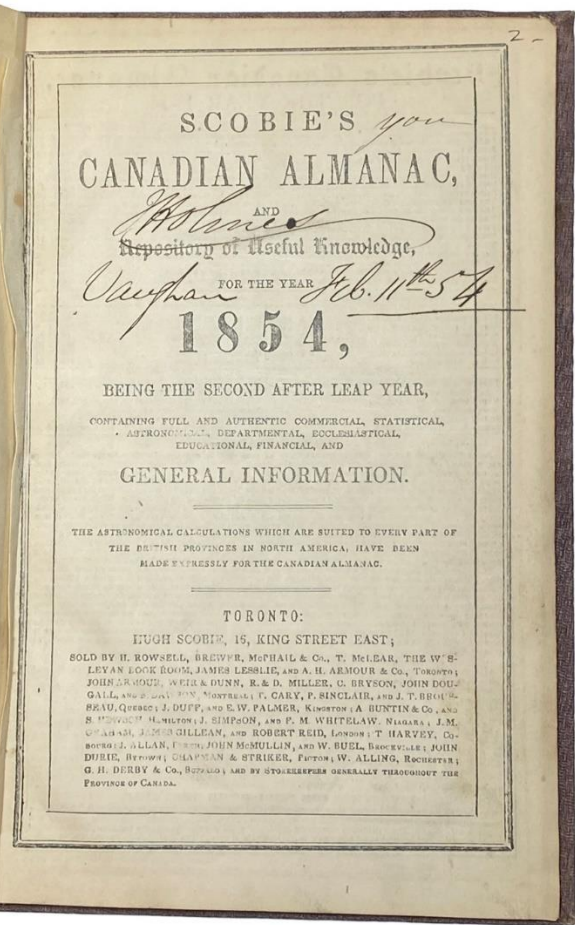 2-
SCOBIE'S you
CANADIAN ALMANAC,
AND
Holmes
Repository of Useful Knowledge,
Vaughan FOR THE YEAR Feb. 11th 54
1854,
BEING THE SECOND AFTER LEAP YEAR,
CONTAINING FULL AND AUTHENTIC COMMERCIAL, STATISTICAL,
ASTRONOMICAL, DEPARTMENTAL, ECCLESIASTICAL,
EDUCATIONAL, FINANCIAL, AND
GENERAL INFORMATION.
THE ASTRONOMICAL CALCULATIONS WHICH ARE SUITED TO EVERY PART OF
THE BRITISH PROVINCES IN NORTH AMERICA, HAVE BEEN
MADE EXPRESSLY FOR THE CANADIAN ALMANAC.
TORONTO:
HUGH SCOBIE, 16, KING STREET EAST;
SOLD BY H. ROWSELL, BREWER, McPHAIL & Co., T. McLEAR, THE WES-
LEYAN BOOK ROOM, JAMES LESSLIE, AND A. H. ARMOUR & Co., TORONTO;
JOHN ARMOUR, WEIR & DUNN, R. & D. MILLER, C. BRYSON, JOHN DOU-
GALL, AND B. DAWSON, MONTREAL; T. CARY, P. SINCLAIR, AND J. T. BROUS-
SEAU, QUEBEC; J. DUFF, AND E. W. PALMER, KINGSTON; A BUNTIN & Co, AND
S. HAMILTON; J. SIMPSON, AND F. M. WHITELAW, NIAGARA; J. M.
GRAHAM, JAMES GILLEAN, AND ROBERT REID, LONDON; T HARVEY, CO-
BOURG; J. ALLAN, PERTH; JOHN McMULLIN, AND W. BUEL, BROCKVILLE; JOHN
DURIE, BYTOWN; CHAPMAN & STRIKER, PICTON; W. ALLING, ROCHESTER;
G. H. DERBY & Co., BUFFALO; AND BY STOREKEEPERS GENERALLY THROUGHOUT THE
PROVINCE OF CANADA.